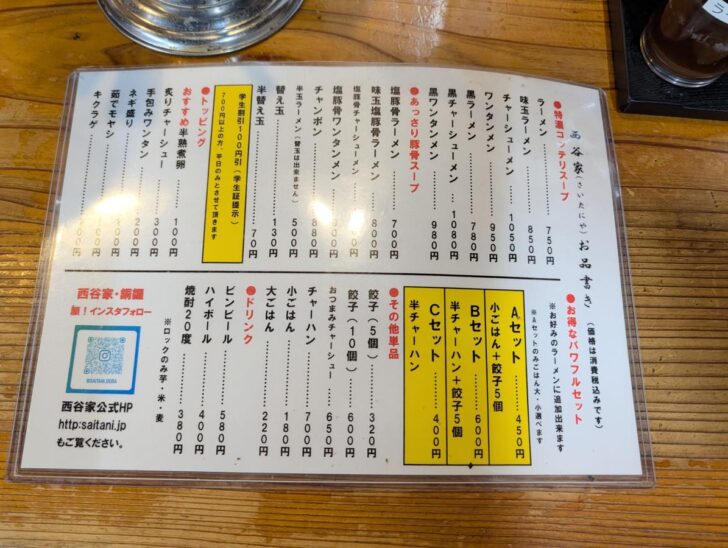 西谷家(さいたにや)お品書き (価格は消費税込みです)
●特濃コッテリスープ
ラーメン………750円
味玉ラーメン………850円
チャーシューメン………1050円
ワンタンメン………950円
黒ラーメン………780円
黒チャーシューメン………1080円
黒ワンタンメン………980円
●あっさり豚骨スープ
塩豚骨ラーメン………700円
味玉塩豚骨ラーメン………800円
塩豚骨チャーシューメン
塩豚骨ワンタンメン
チャンポン………880円
半玉ラーメン(替玉は出来ません)………500円
替え玉………130円
半替え玉………70円
学生割引100円引(学生証提示)
700円以上の方、平日のみとさせて頂きます
●トッピング
おすすめ半熟煮卵………100円
炙りチャーシュー………300円
手包みワンタン
ネギ盛り
茹でモヤシ
キクラゲ
●お得なパワフルセット
※お好みのラーメンに追加出来ます
※Aセットのみごはん大・小選べます
Aセット………450円
小ごはん+餃子5個
Bセット………600円
半チャーハン+餃子5個
Cセット………400円
半チャーハン
●その他単品
餃子(5個)………320円
餃子(10個)………600円
おつまみチャーシュー………650円
チャーハン………700円
小ごはん………180円
大ごはん………220円
●ドリンク
ビンビール………580円
ハイボール………400円
焼酎20度………380円
※ロックのみ芋・米・麦
西谷家・銅鑼
願!インスタフォロー
@SAITANI.DORA
西谷家公式HP
http:saitani.jp
もご覧ください。